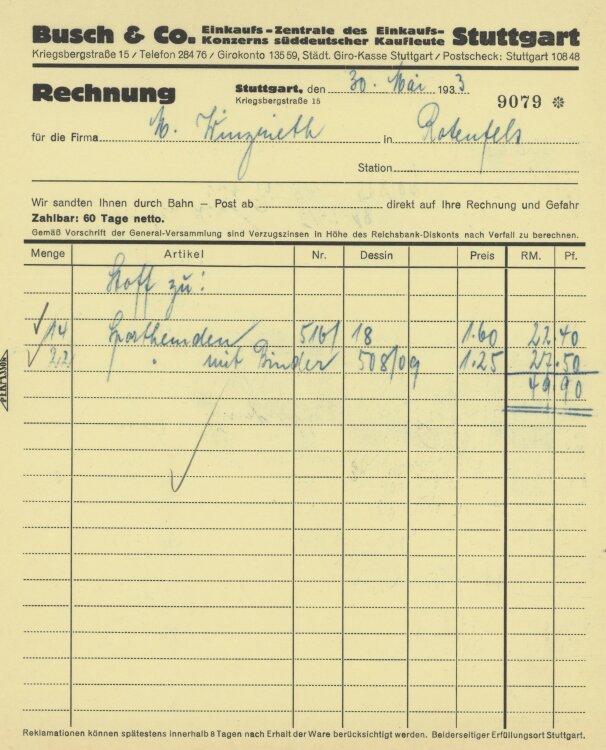 Busch & Co. Einkaufs-Zentrale des Einkaufs-Konzerns süddeutscher Kaufleute Stuttgart
Kriegsbergstraße 15 / Telefon 284 76 / Girokonto 135 59, Städt. Giro-Kasse Stuttgart / Postscheck: Stuttgart 108 48
Rechnung Stuttgart, den 30. Mai 1933
Kriegsbergstraße 15 9079 ❊
für die Firma M. in Rotenfels
Station
Wir sandten Ihnen durch Bahn – Post ab direkt auf Ihre Rechnung und Gefahr
Zahlbar: 60 Tage netto.
Gemäß Vorschrift der General-Versammlung sind Verzugszinsen in Höhe des Reichsbank-Diskonts nach Verfall zu berechnen.
Menge Artikel Nr. Dessin Preis RM. Pf.
Stoff zu:
14 Sporthemden 516/ 18 1.60 22.40
22 " mit Binder 508/09 1.25 27.50
49.90
Reklamationen können spätestens innerhalb 8 Tagen nach Erhalt der Ware berücksichtigt werden. Beiderseitiger Erfüllungsort Stuttgart.